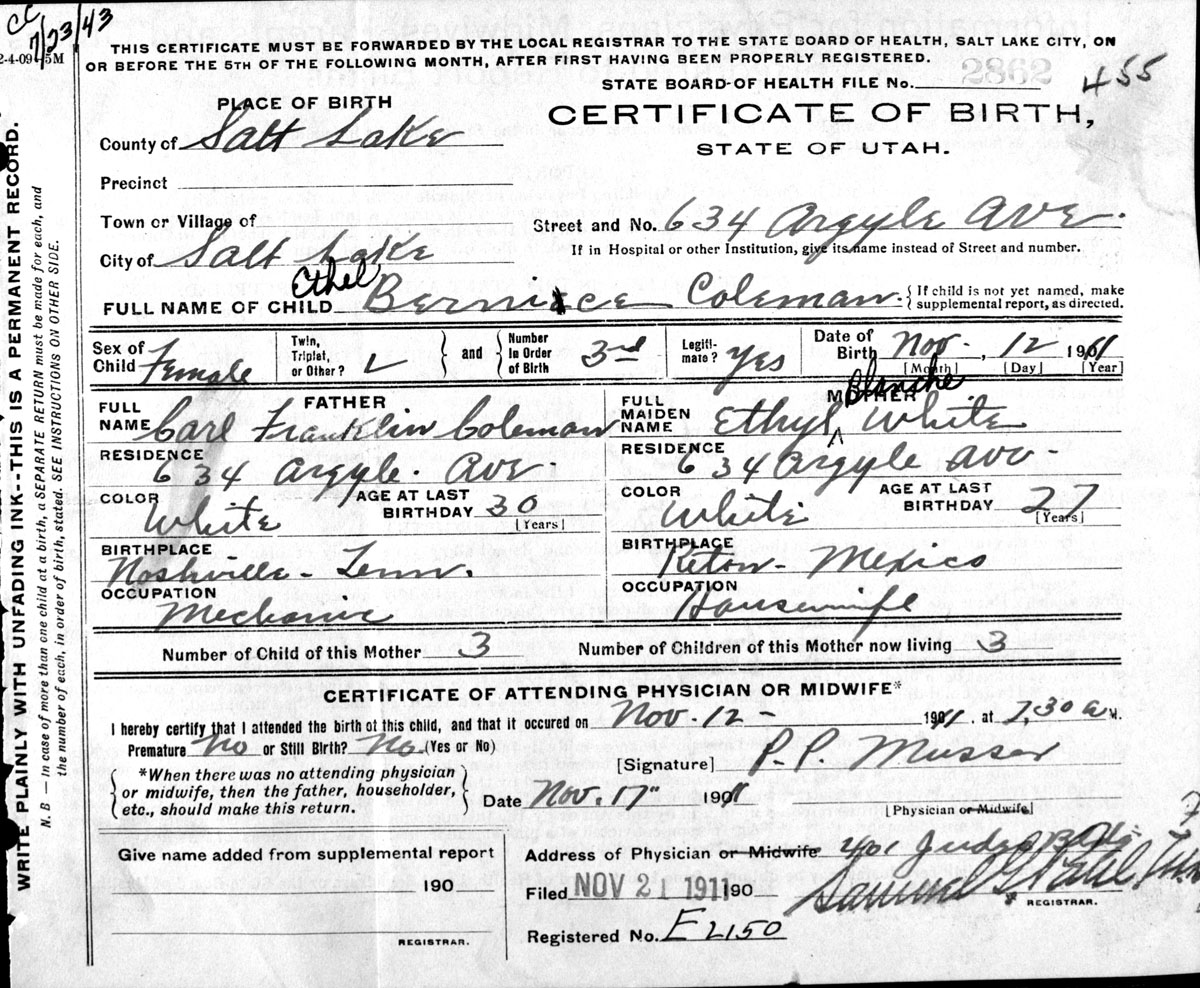 CC 7/23/43
2-4-09-5M
THIS CERTIFICATE MUST BE FORWARDED BY THE LOCAL REGISTRAR TO THE STATE BOARD OF HEALTH, SALT LAKE CITY, ON
OR BEFORE THE 5TH OF THE FOLLOWING MONTH, AFTER FIRST HAVING BEEN PROPERLY REGISTERED.
STATE BOARD OF HEALTH FILE No. 2862 455
PLACE OF BIRTH
CERTIFICATE OF BIRTH,
STATE OF UTAH.
County of Salt Lake
Precinct
Town or Village of
Street and No. 634 Argyle Ave.
City of Salt Lake
If in Hospital or other Institution, give its name instead of Street and number.
FULL NAME OF CHILD Ethel Bernice Coleman. { If child is not yet named, make supplemental report, as directed.
Sex of Child Female
Twin, Triplet, or Other?
and
Number In Order of Birth 3rd
Legiti-mate? Yes
Date of Birth Nov. 12 1911
[Month] [Day] [Year]
FATHER
FULL NAME Carl Franklin Coleman
RESIDENCE 634 Argyle. Ave.
COLOR White
AGE AT LAST BIRTHDAY 30 [Years]
BIRTHPLACE Noshville - Tenn.
OCCUPATION Mechanic
MOTHER
FULL MAIDEN NAME Ethyl Blanche White
RESIDENCE 634 Argyle Ave.
COLOR White
AGE AT LAST BIRTHDAY 27 [Years]
BIRTHPLACE Mexico
OCCUPATION Housewife
Number of Child of this Mother 3
Number of Children of this Mother now living 3
CERTIFICATE OF ATTENDING PHYSICIAN OR MIDWIFE*
I hereby certify that I attended the birth of this child, and that it occured on Nov. 12 - 1911. at 7,30 a M.
Premature No or Still Birth? No (Yes or No)
[Signature] P. P. Musser
*When there was no attending physician
or midwife, then the father, householder,
etc., should make this return.
Date Nov. 17" 1911
[Physician or Midwife]
Give name added from supplemental report
190
REGISTRAR.
Address of Physician or Midwife 401 Judge Bldg
Filed NOV 21 1911 190
Samuel G. Paul
REGISTRAR.
Registered No. E 2150
WRITE PLAINLY WITH UNFADING INK---THIS IS A PERMANENT RECORD.
N. B — In case of more than one child at a birth, a SEPARATE RETURN must be made for each, and
the number of each, in order of birth, stated. SEE INSTRUCTIONS ON OTHER SIDE.